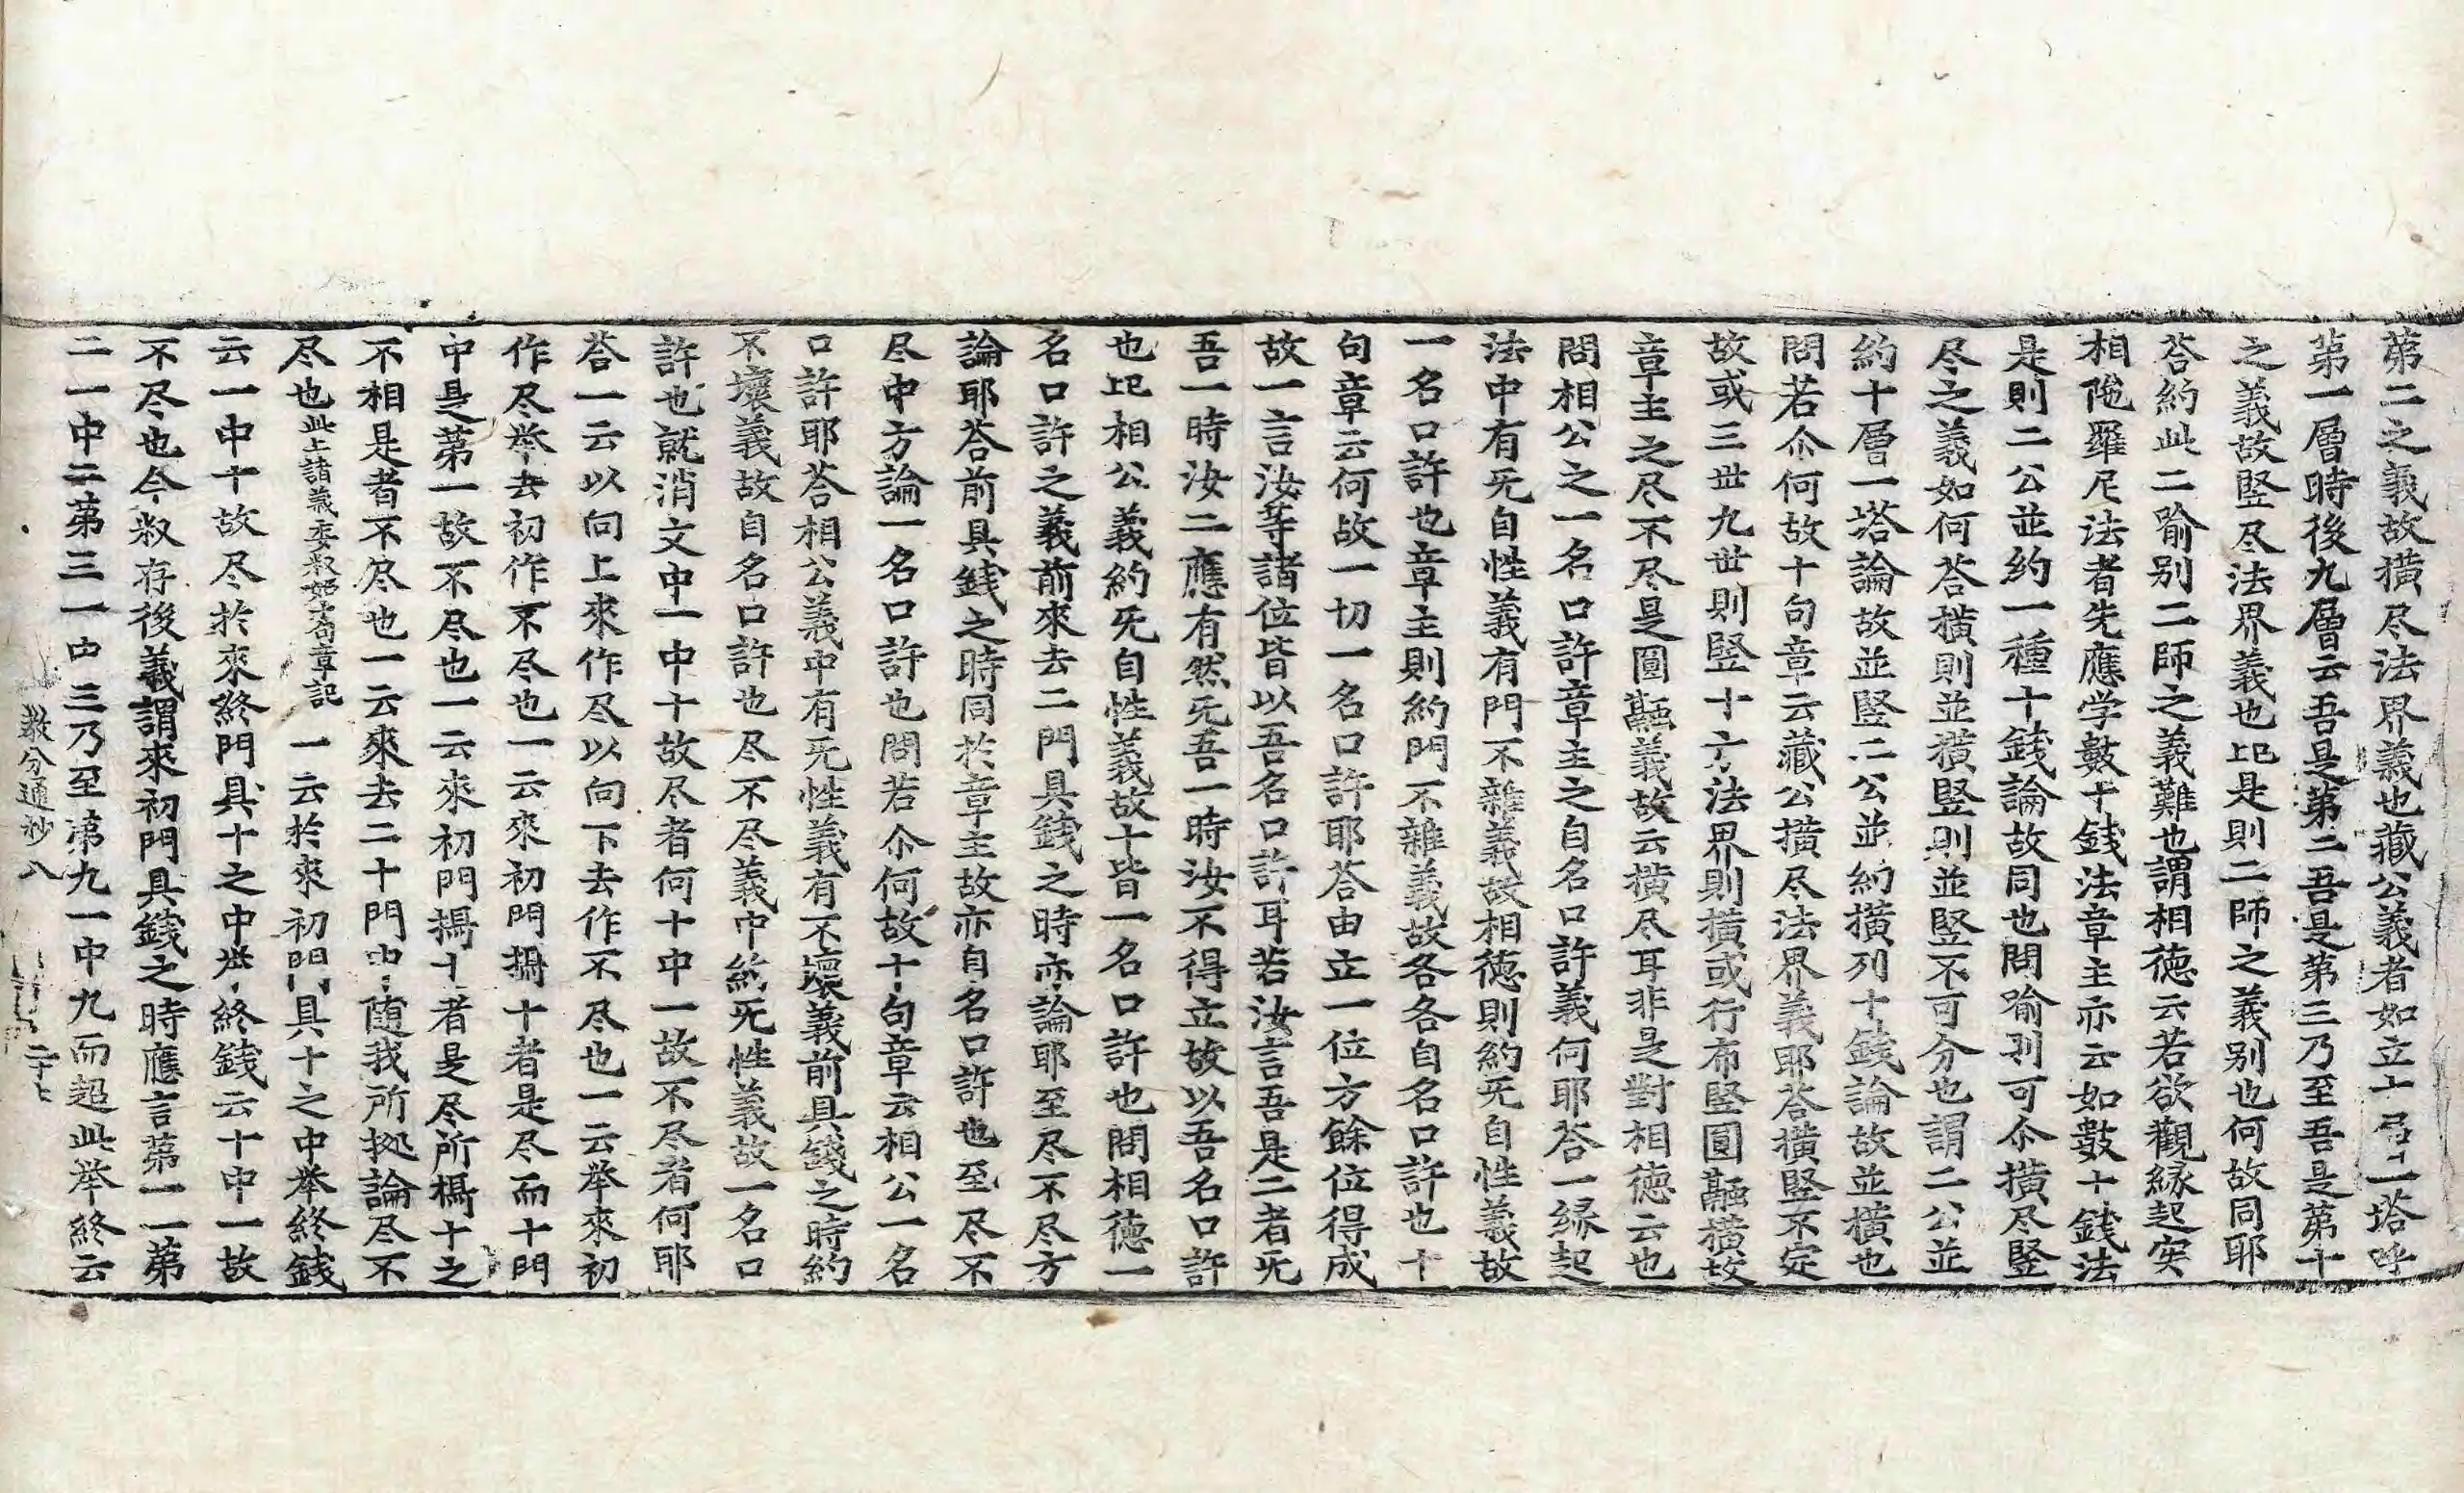 第二之義故横尽法界義也藏公義者如立十层一塔呼
第一層時後九層云吾是第二吾是第三乃至吾是第十
之義故竪尽法界義也此是則二師之義别也何故同耶
荅約此二喻别二師之義難也謂相徳云若欲觀縁起实
相陁羅尼法者先應学數十錢法章主亦云如數十錢法
是則二公並約一種十錢論故同也問喻則可尒横尽竪
尽之義如何荅横則並横竪則並竪不可分也謂二公並
約十層一塔論故並竪二公並約横列十錢論故並横也
問若尒何故十句章云藏公横尽法界義耶荅横竪不定
故或三世九世則竪十方法界則横或行布竪圓融横故
章主之尽不尽是圓融義故云横尽耳非是對相徳云也
問相公之一名口許章主之自名口許義何耶荅一縁起
法中有旡自性義有門不雜義故相徳則約旡自性義故
一名口許也章主則約門不雜義故各各自名口許也十
句章云何故一切一名口許耶荅由立一位方餘位得成
故一言汝等諸位皆以吾名口許耳若汝言吾是二者旡
吾一時汝二應有然旡吾一時汝不得立故以吾名口許
也此相公義約旡自性義故十皆一名口許也問相徳一
名口許之義前來去二門具錢之時亦論耶至尽不尽方
論耶荅前具錢之時同於章主故亦自名口許也至尽不
尽中方論一名口許也問若尒何故十句章云相公一名
口許耶荅相公義中有旡性義有不壞義前具錢之時約
不壞義故自名口許也尽不尽義中約旡性義故一名口
許也就消文中一中十故尽者何十中一故不尽者何耶
荅一云以向上來作尽以向下去作不尽也一云举來初
作尽举去初作不尽也一云來初門攝十者是尽而十門
中是第一故不尽也一云來初門攝十者是尽所攝十之
不相是者不尽也一云來去二十門中随我所拠論尽不
尽也此上諸義委叙如大句章記 一云於來初門具十之中举終錢
云一中十故尽於來終門具十之中举終錢云十中一故
不尽也今叙存後義謂來初門具錢之時應言第一一第
二一中二第三一中三乃至第九一中九而超此举終云
教分通抄八 二十七